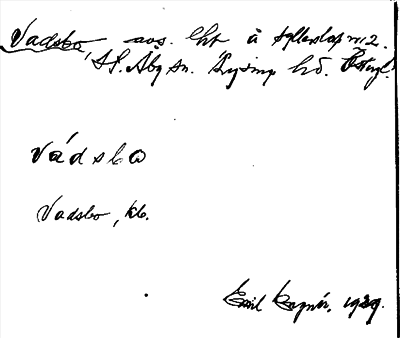 Vadsbo, avs. lht å Fyllerstad nr. 2.
St. Åby sn. Lysings hd. Östergl.
Vádsbo
Vadsbo, kb.
Emil 1929.